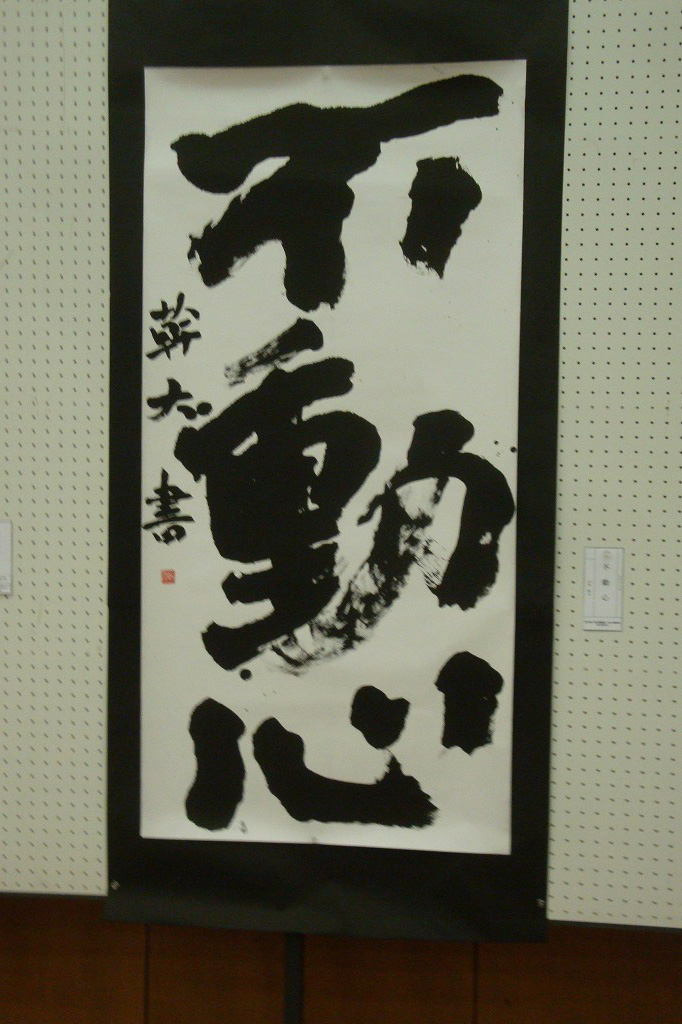 不動心
幹太書
不動心